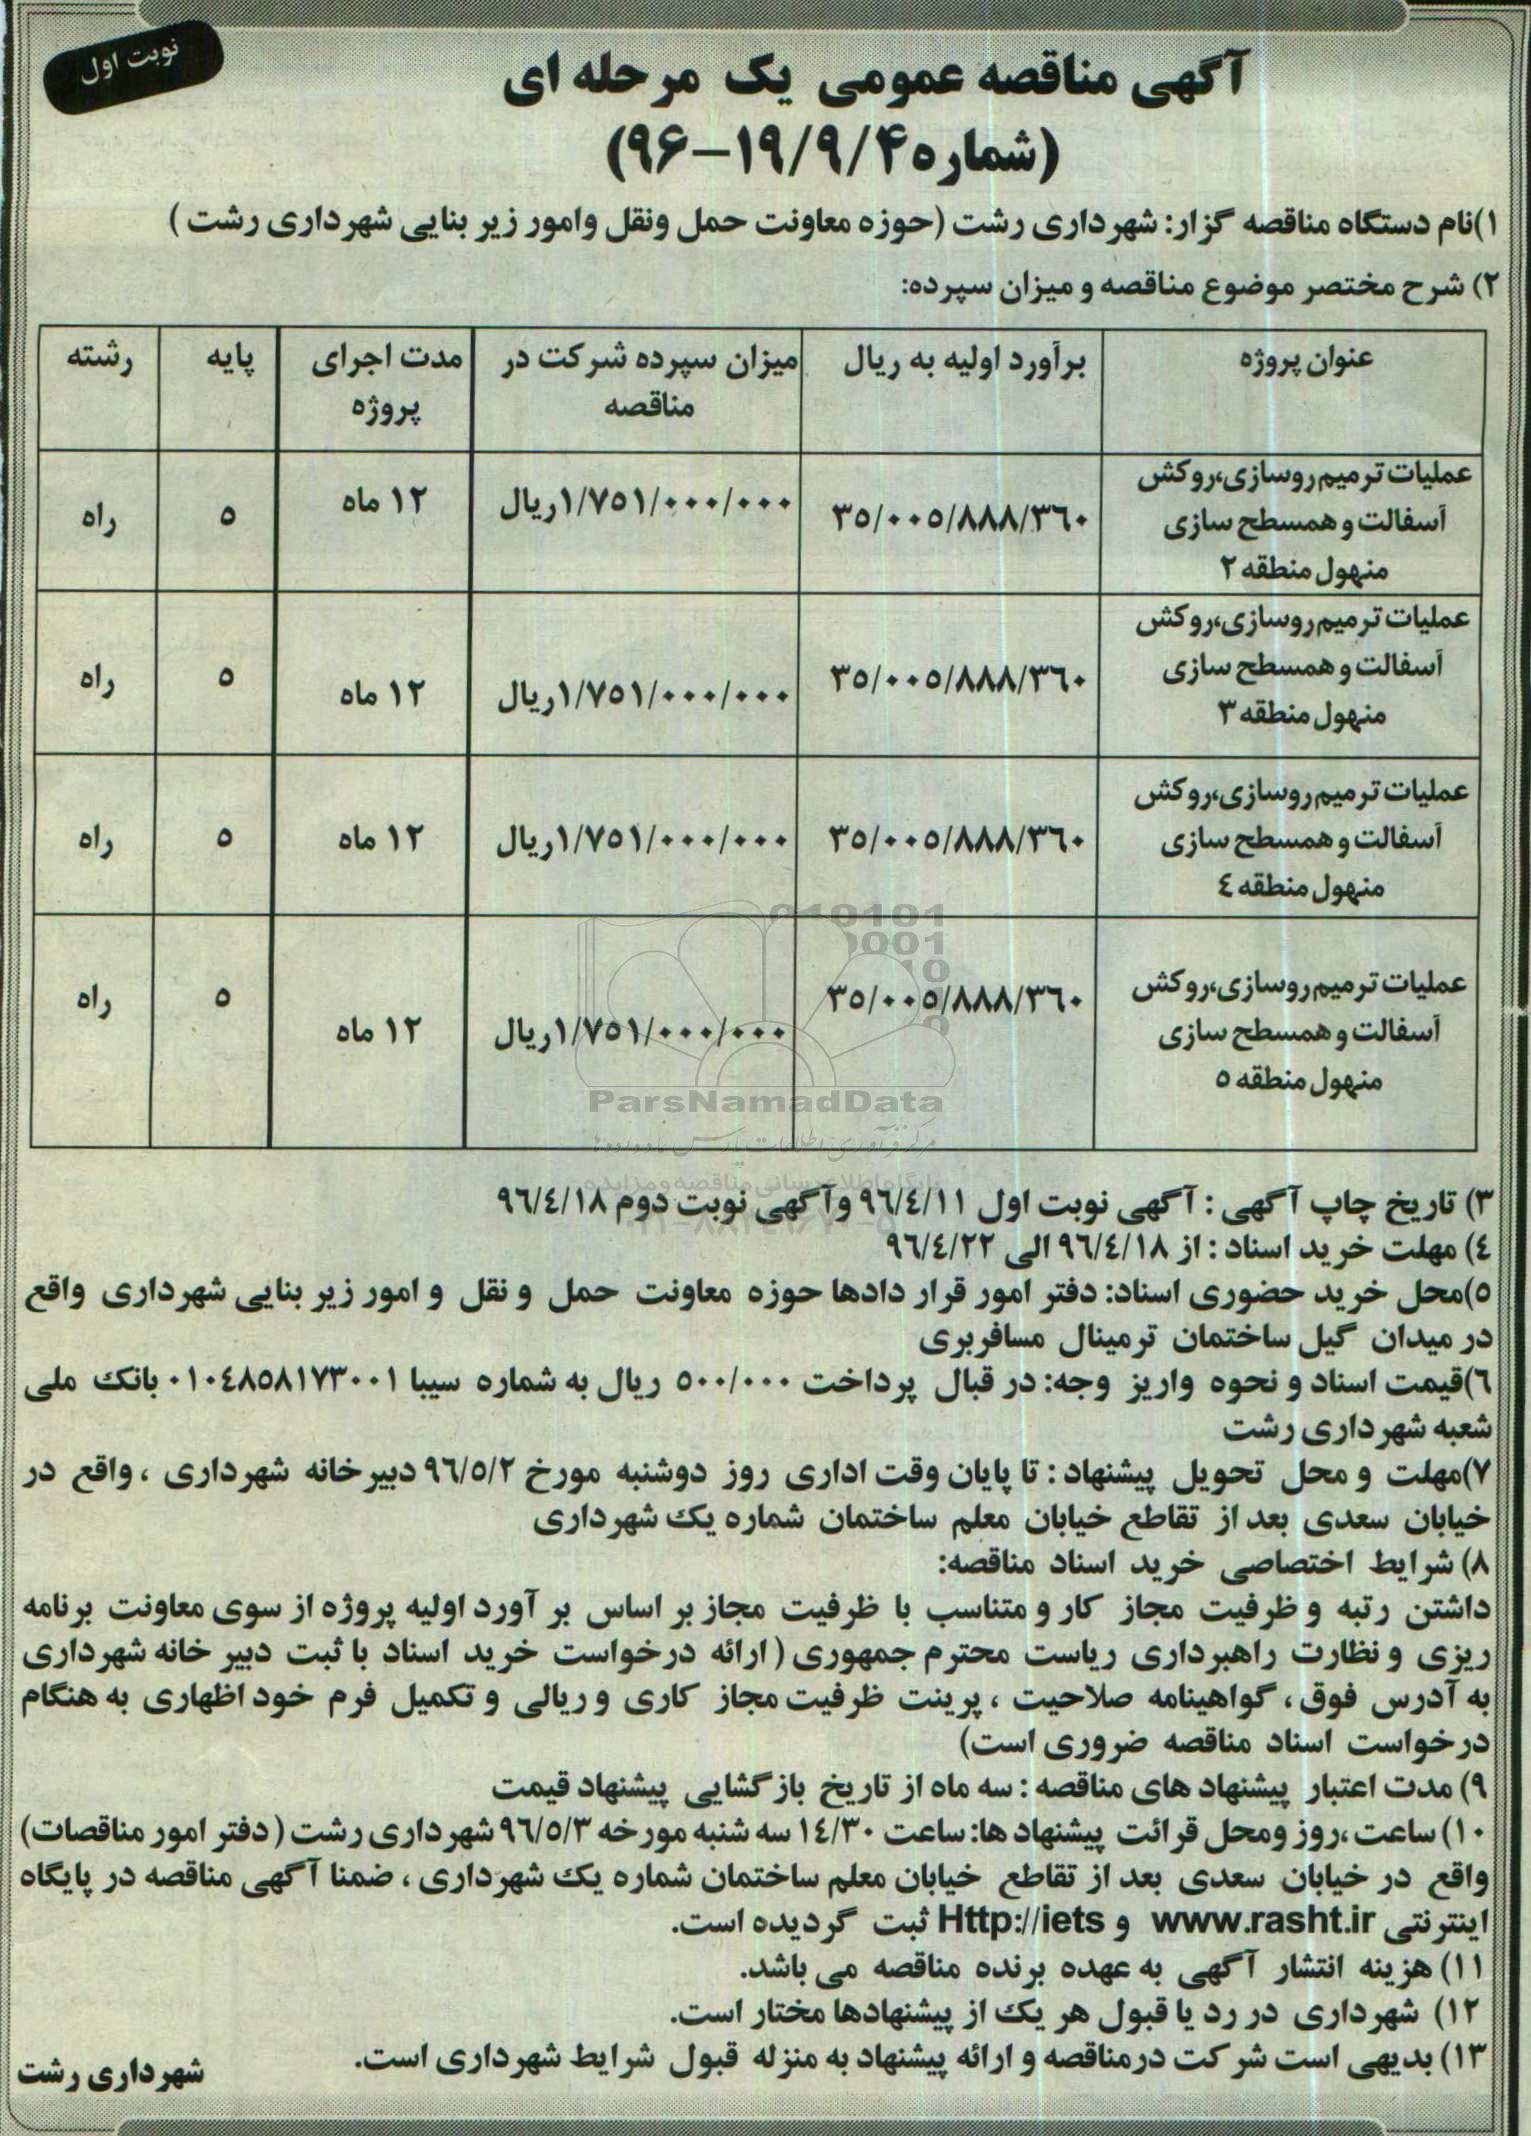 نوبت اول
آگهی مناقصه عمومی یک مرحله ای
(شماره ۱۹/۹/۴-۹۶)
۱)نام دستگاه مناقصه گزار: شهرداری رشت (حوزه معاونت حمل ونقل وامور زیر بنایی شهرداری رشت )
۲) شرح مختصر موضوع مناقصه و میزان سپرده:
عنوان پروژه	برآورد اولیه به ریال	میزان سپرده شرکت در مناقصه	مدت اجرای پروژه	پایه	رشته
عملیات ترمیم روسازی،روکش آسفالت و همسطح سازی منهول منطقه ۲	۳۵/۰۰۵/۸۸۸/۳٦۰	۱/۷۵۱/۰۰۰/۰۰۰ریال	۱۲ ماه	۵	راه
عملیات ترمیم روسازی،روکش آسفالت و همسطح سازی منهول منطقه ۳	۳۵/۰۰۵/۸۸۸/۳٦۰	۱/۷۵۱/۰۰۰/۰۰۰ریال	۱۲ ماه	۵	راه
عملیات ترمیم روسازی،روکش آسفالت و همسطح سازی منهول منطقه ٤	۳۵/۰۰۵/۸۸۸/۳٦۰	۱/۷۵۱/۰۰۰/۰۰۰ریال	۱۲ ماه	۵	راه
عملیات ترمیم روسازی،روکش آسفالت و همسطح سازی منهول منطقه ۵	۳۵/۰۰۵/۸۸۸/۳٦۰	۱/۷۵۱/۰۰۰/۰۰۰ریال	۱۲ ماه	۵	راه
ParsNamadData
۳) تاریخ چاپ آگهی : آگهی نوبت اول ۹٦/٤/۱۱ وآگهی نوبت دوم ۹٦/٤/۱۸
٤) مهلت خرید اسناد : از ۹٦/٤/۱۸ الی ۹٦/٤/۲۲
۵)محل خرید حضوری اسناد: دفتر امور قرار دادها حوزه معاونت حمل و نقل و امور زیر بنایی شهرداری واقع
در میدان گیل ساختمان ترمینال مسافربری
٦)قیمت اسناد و نحوه واریز وجه: در قبال پرداخت ۵۰۰/۰۰۰ ریال به شماره سیبا ۰۱۰٤۸۵۸۱۷۳۰۰۱ بانک ملی
شعبه شهرداری رشت
۷)مهلت و محل تحویل پیشنهاد : تا پایان وقت اداری روز دوشنبه مورخ ۹٦/۵/۲ دبیرخانه شهرداری ، واقع در
خیابان سعدی بعد از تقاطع خیابان معلم ساختمان شماره یک شهرداری
۸) شرایط اختصاصی خرید اسناد مناقصه:
داشتن رتبه و ظرفیت مجاز کار و متناسب با ظرفیت مجاز بر اساس بر آورد اولیه پروژه از سوی معاونت برنامه
ریزی و نظارت راهبرداری ریاست محترم جمهوری ( ارائه درخواست خرید اسناد با ثبت دبیر خانه شهرداری
به آدرس فوق ، گواهینامه صلاحیت ، پرینت ظرفیت مجاز کاری و ریالی و تکمیل فرم خود اظهاری به هنگام
درخواست اسناد مناقصه ضروری است)
۹) مدت اعتبار پیشنهاد های مناقصه : سه ماه از تاریخ باز گشایی پیشنهاد قیمت
۱۰) ساعت ،روز ومحل قرائت پیشنهاد ها: ساعت ۱٤/۳۰ سه شنبه مورخه ۹٦/۵/۳ شهرداری رشت ( دفتر امور مناقصات)
واقع در خیابان سعدی بعد از تقاطع خیابان معلم ساختمان شماره یک شهرداری ، ضمنا آگهی مناقصه در پایگاه
اینترنتی www.rasht.ir و Http://iets ثبت گردیده است.
۱۱) هزینه انتشار آگهی به عهده برنده مناقصه می باشد.
۱۲) شهرداری در رد یا قبول هر یک از پیشنهادها مختار است.
۱۳) بدیهی است شرکت درمناقصه و ارائه پیشنهاد به منزله قبول شرایط شهرداری است.
شهرداری رشت